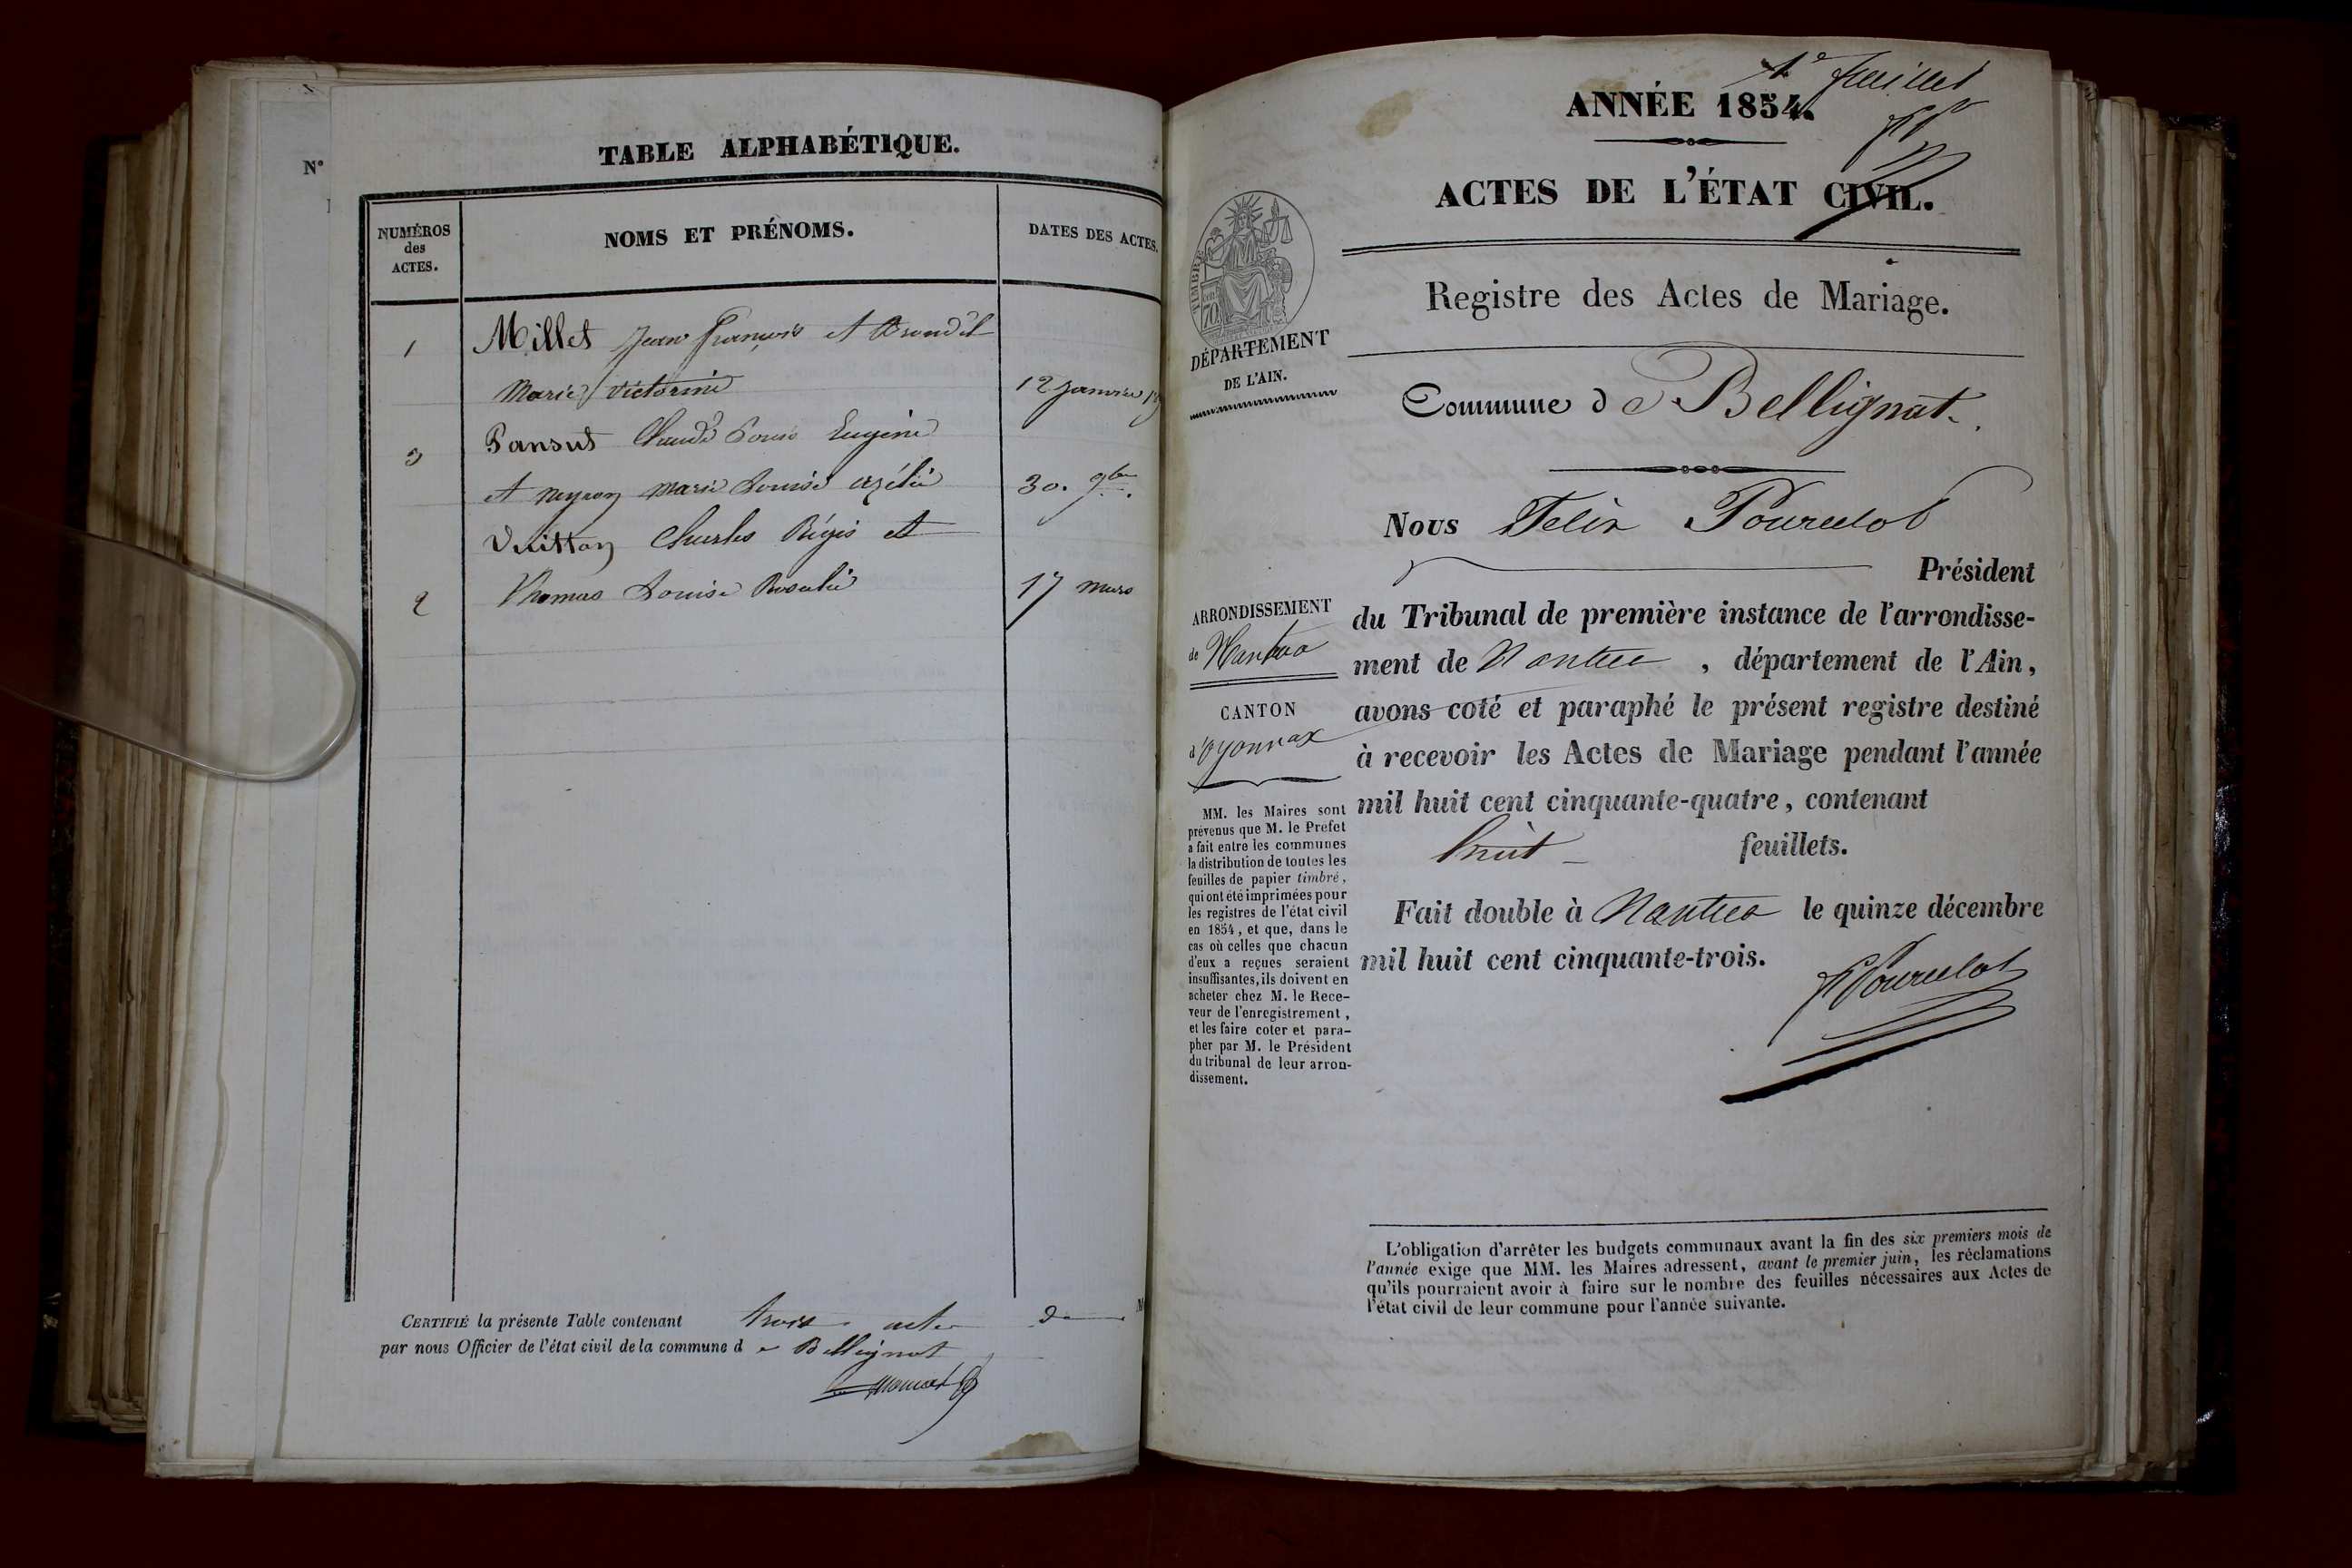 N°
TABLE ALPHABÉTIQUE.
NUMÉROS
des
ACTES.
NOMS ET PRÉNOMS.
DATES DES ACTES.
1
Millet Jean François et
Marie Victorine
12 Janvier
3
Pansut Claude Louis Eugène
et Neyron Marie Louise Azélie
30. 9bre
Vuitton Charles Régis et
2
Thomas Louise Rosalie
17 mars
CERTIFIÉ la présente Table contenant trois actes de
par nous Officier de l'état civil de la commune d e Bellignat
1er feuillet
ANNÉE 1854.
ACTES DE L'ÉTAT CIVIL.
Registre des Actes de Mariage.
TIMBRE
70
DÉPARTEMENT
DE L'AIN.
Commune d e Bellignat.
Nous Felix Pourcelot
Président
ARRONDISSEMENT
de Nantua
CANTON
d'Oyonnax
du Tribunal de première instance de l'arrondisse-
ment de Nantua , département de l'Ain,
avons coté et paraphé le présent registre destiné
à recevoir les Actes de Mariage pendant l'année
mil huit cent cinquante-quatre, contenant
huit feuillets.
Fait double à Nantua le quinze décembre
mil huit cent cinquante-trois.
FPourcelot
MM. les Maires sont
prévenus que M. le Préfet
a fait entre les communes
la distribution de toutes les
feuilles de papier timbré,
qui ont été imprimées pour
les registres de l'état civil
en 1854, et que, dans le
cas où celles que chacun
d'eux a reçues seraient
insuffisantes, ils doivent en
acheter chez M. le Rece-
veur de l'enregistrement,
et les faire coter et para-
pher par M. le Président
du tribunal de leur arron-
dissement.
L'obligation d'arrêter les budgets communaux avant la fin des six premiers mois de
l'année exige que MM. les Maires adressent, avant le premier juin, les réclamations
qu'ils pourraient avoir à faire sur le nombre des feuilles nécessaires aux Actes de
l'état civil de leur commune pour l'année suivante.